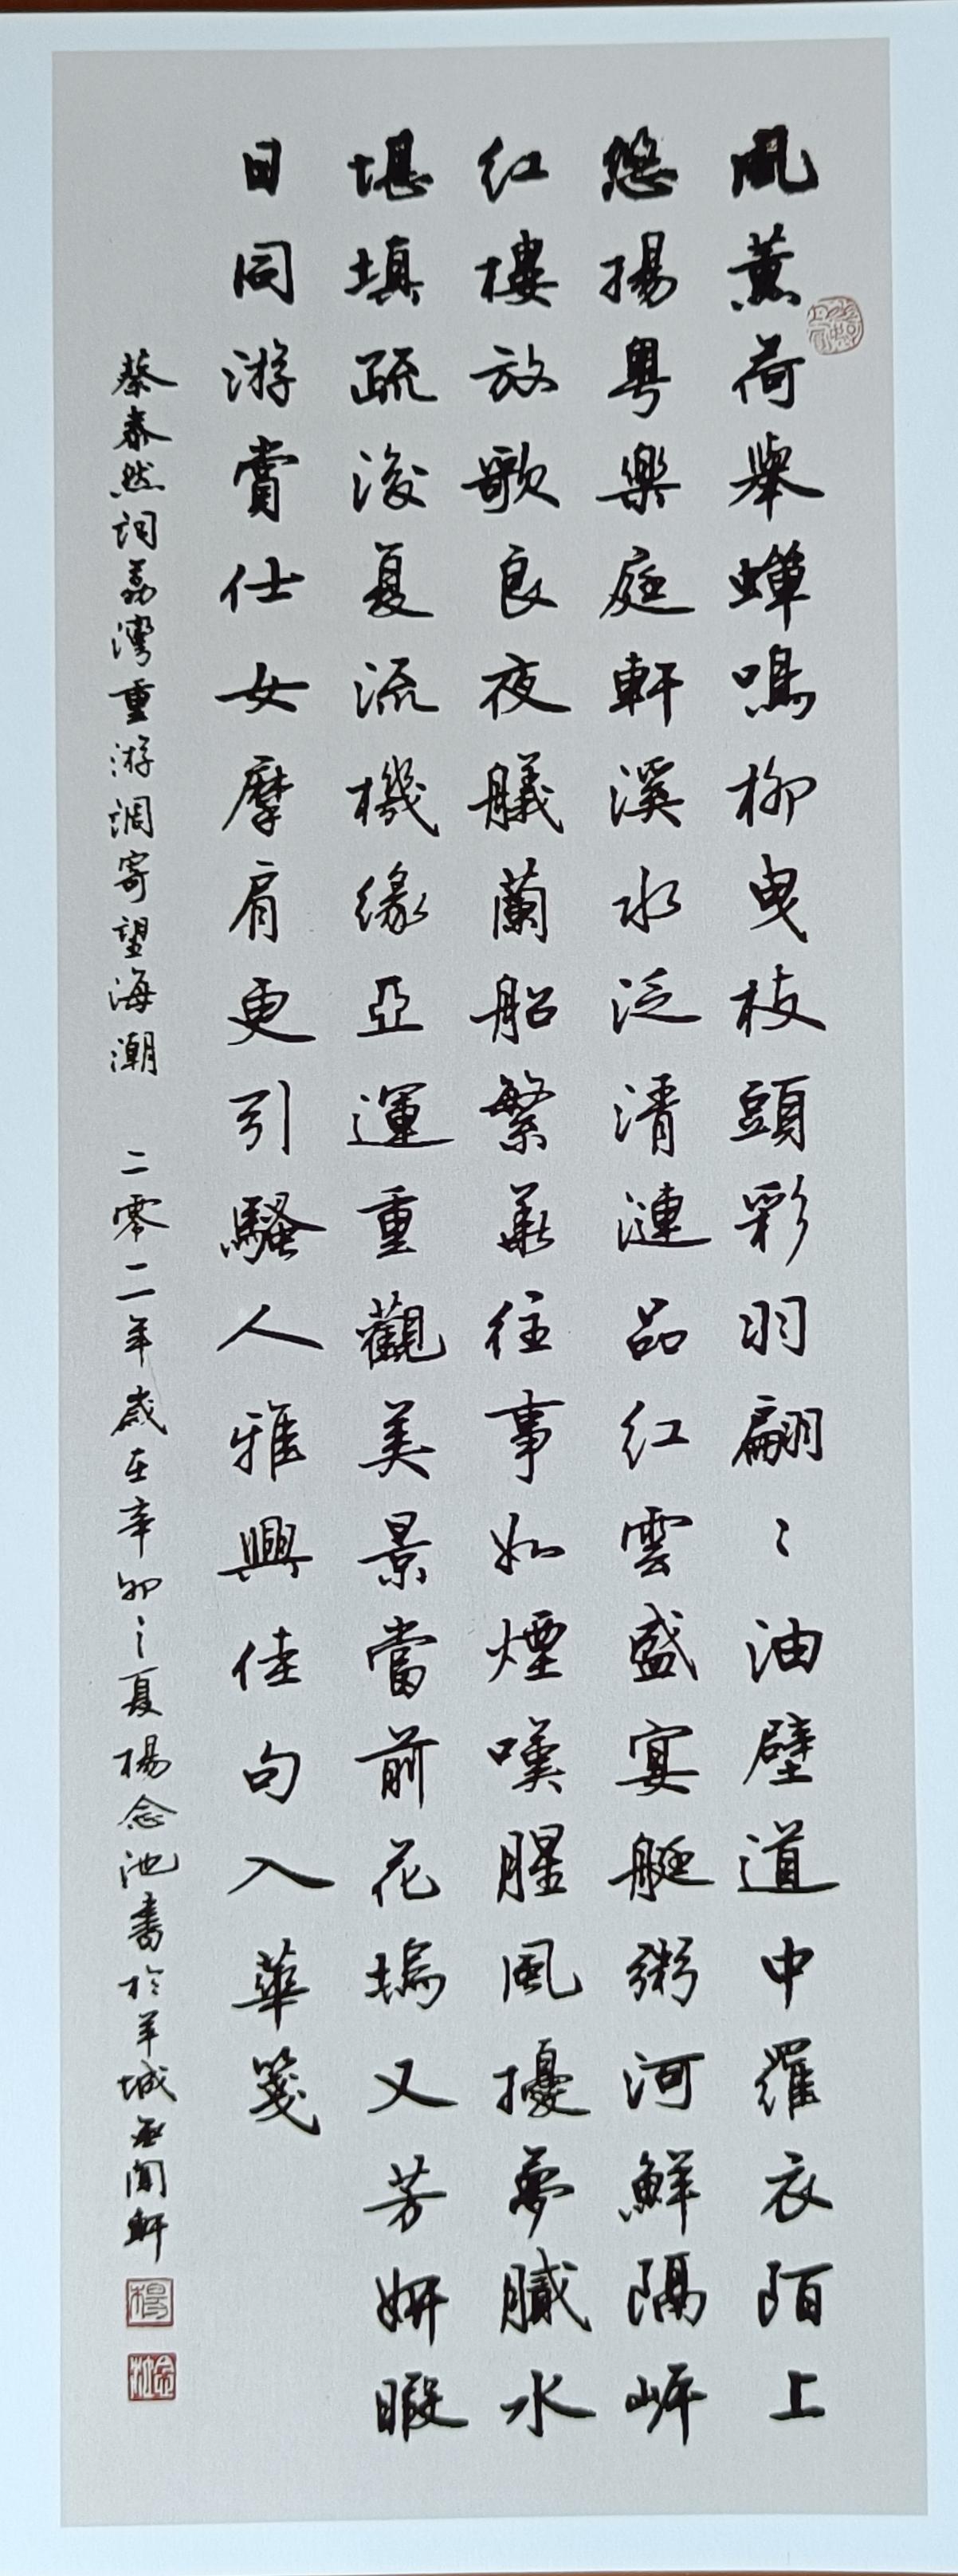 風薰荷舉蟬鳴柳曳枝頭彩羽翩〻油壁道中羅衣陌上
悠揚粤樂庭軒溪水泛清漣品紅雲盛宴艇粥河鮮隔岸
紅樓放歌良夜艤蘭船繁華往事如煙嘆腥風擾夢膩水
堪填疏浚夏流機緣亞運重觀美景當前花塢又芳妍暇
日同游賞仕女摩肩更引騷人雅興佳句入華箋
蔡泰然詞荔灣重游調寄望海潮 二零二年歲在辛卯之夏楊念池書於羊城無聞軒